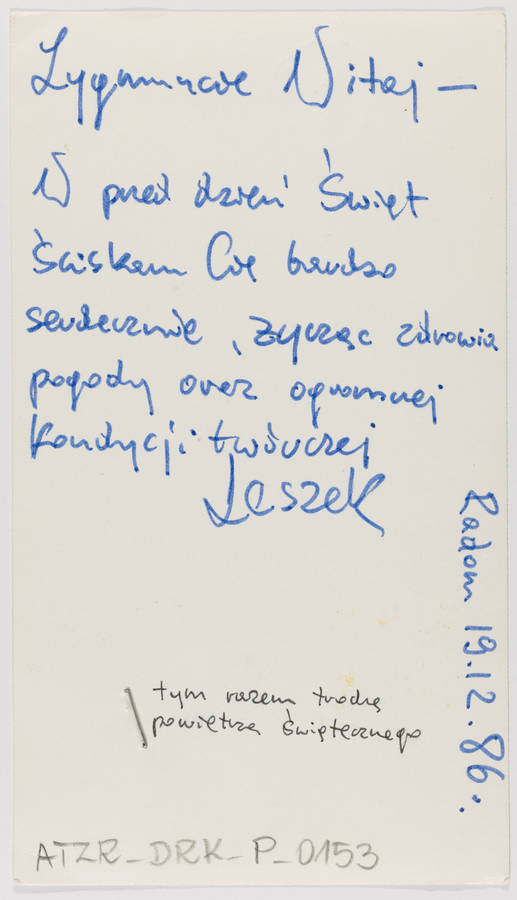 Zygmuncie Witaj —
W przed dzień Świąt
Ściskam Cię bardzo
serdecznie, życząc zdrowia
pogody oraz ogromnej
kondycji twórczej
Leszek
Radom 19.12.86.
tym razem trochę
powietrza Świątecznego
ATZR_DRK_P_0153